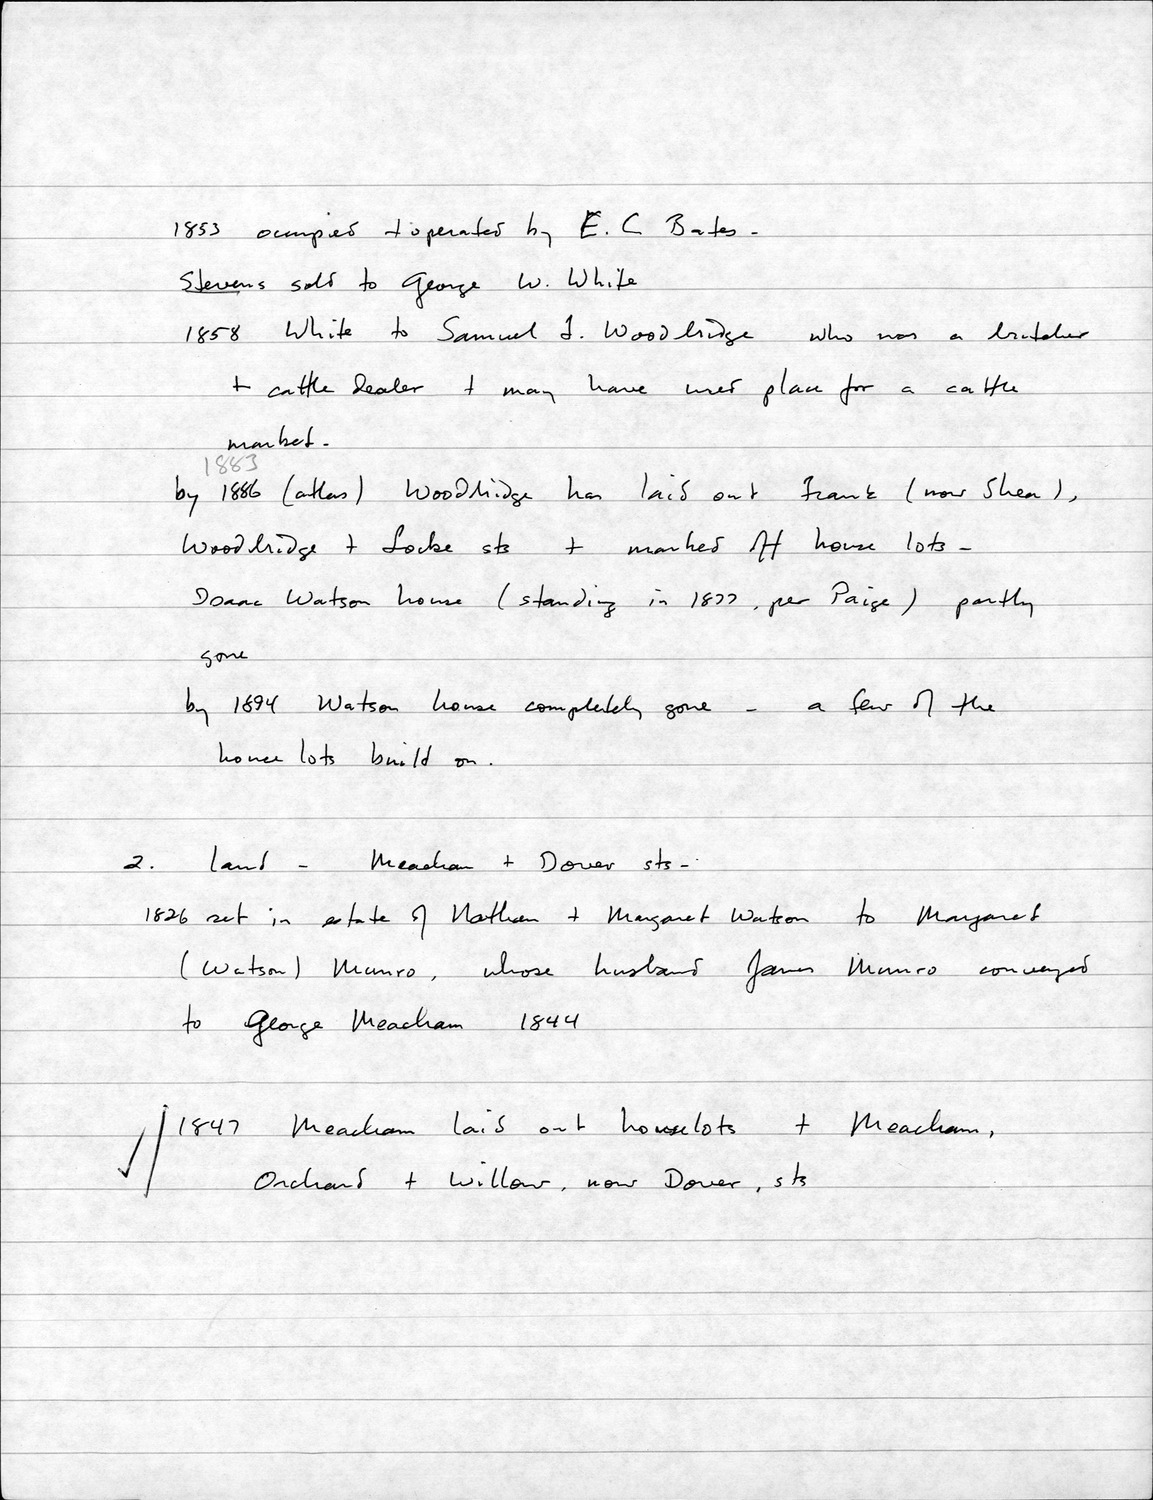 1853 occupied + operated by E. C Bates -
Stevens sold to George W. White
1858 White to Samuel F. Woodbridge who was a butcher
+ cattle dealer + may have used place for a cattle
market -
1883
by 1886 (atlas) Woodbridge has laid out Frank (now Shea),
Woodbridge + Locke sts + marked off house lots -
Isaac Watson house (standing in 1877, per Paige) partly
gone
by 1894 Watson house completely gone - a few of the
house lots build on.
2. land - Meacham + Dover sts -
1826 set in estate of Nathan + Margaret Watson to Margaret
(Watson) Munro, whose husband James Munro conveyed
to George Meacham 1844
1847 Meacham laid out houselots + Meacham,
Orchard + Willow, now Dover, sts